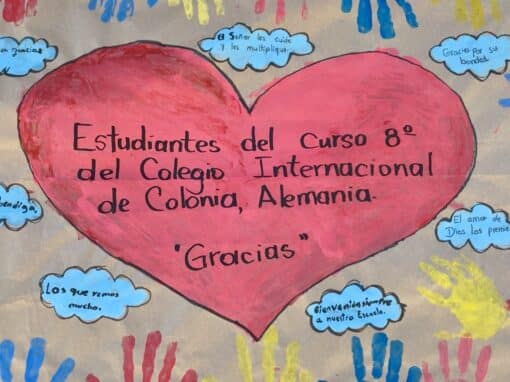 El Señor les cuide
y les multiplique.
Gracias por su
bondad.
Estudiantes del Curso 8º
del Colegio Internacional
de Colonia, Alemania.
"Gracias"
El amor de
Dios les premie
Los queremos
mucho.
Bienvenidos siempre
a nuestra Escuela.